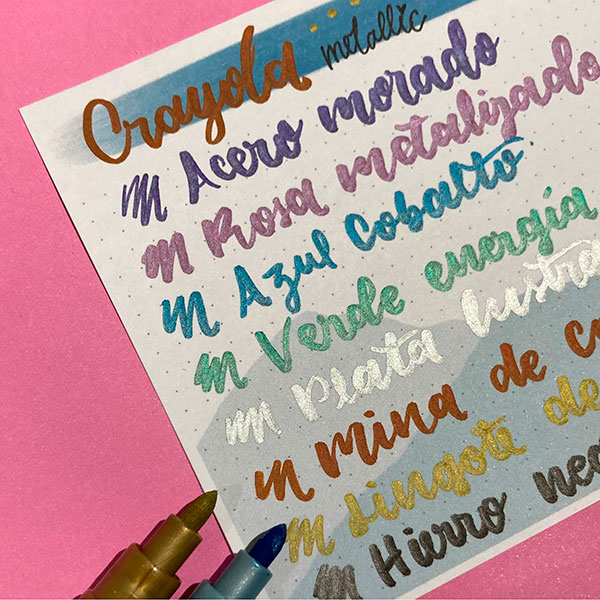 Crayola metallic
Acero morado
Rosa metalizado
Azul Cobalto
Verde energía
Plata lustra
mina de
Lingote de
Hierro neg